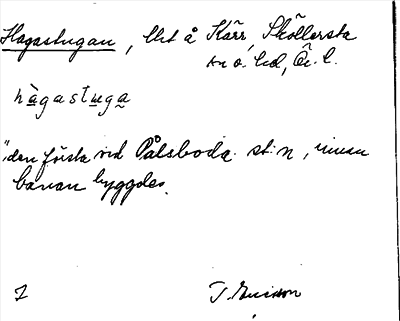 Hagastugan, lht å Kärr Sköllersta
sn o. hd, Ör. l.
hàgastuga
"den första vid Pålsboda st:n, innan
banan byggdes.
T. Ericsson